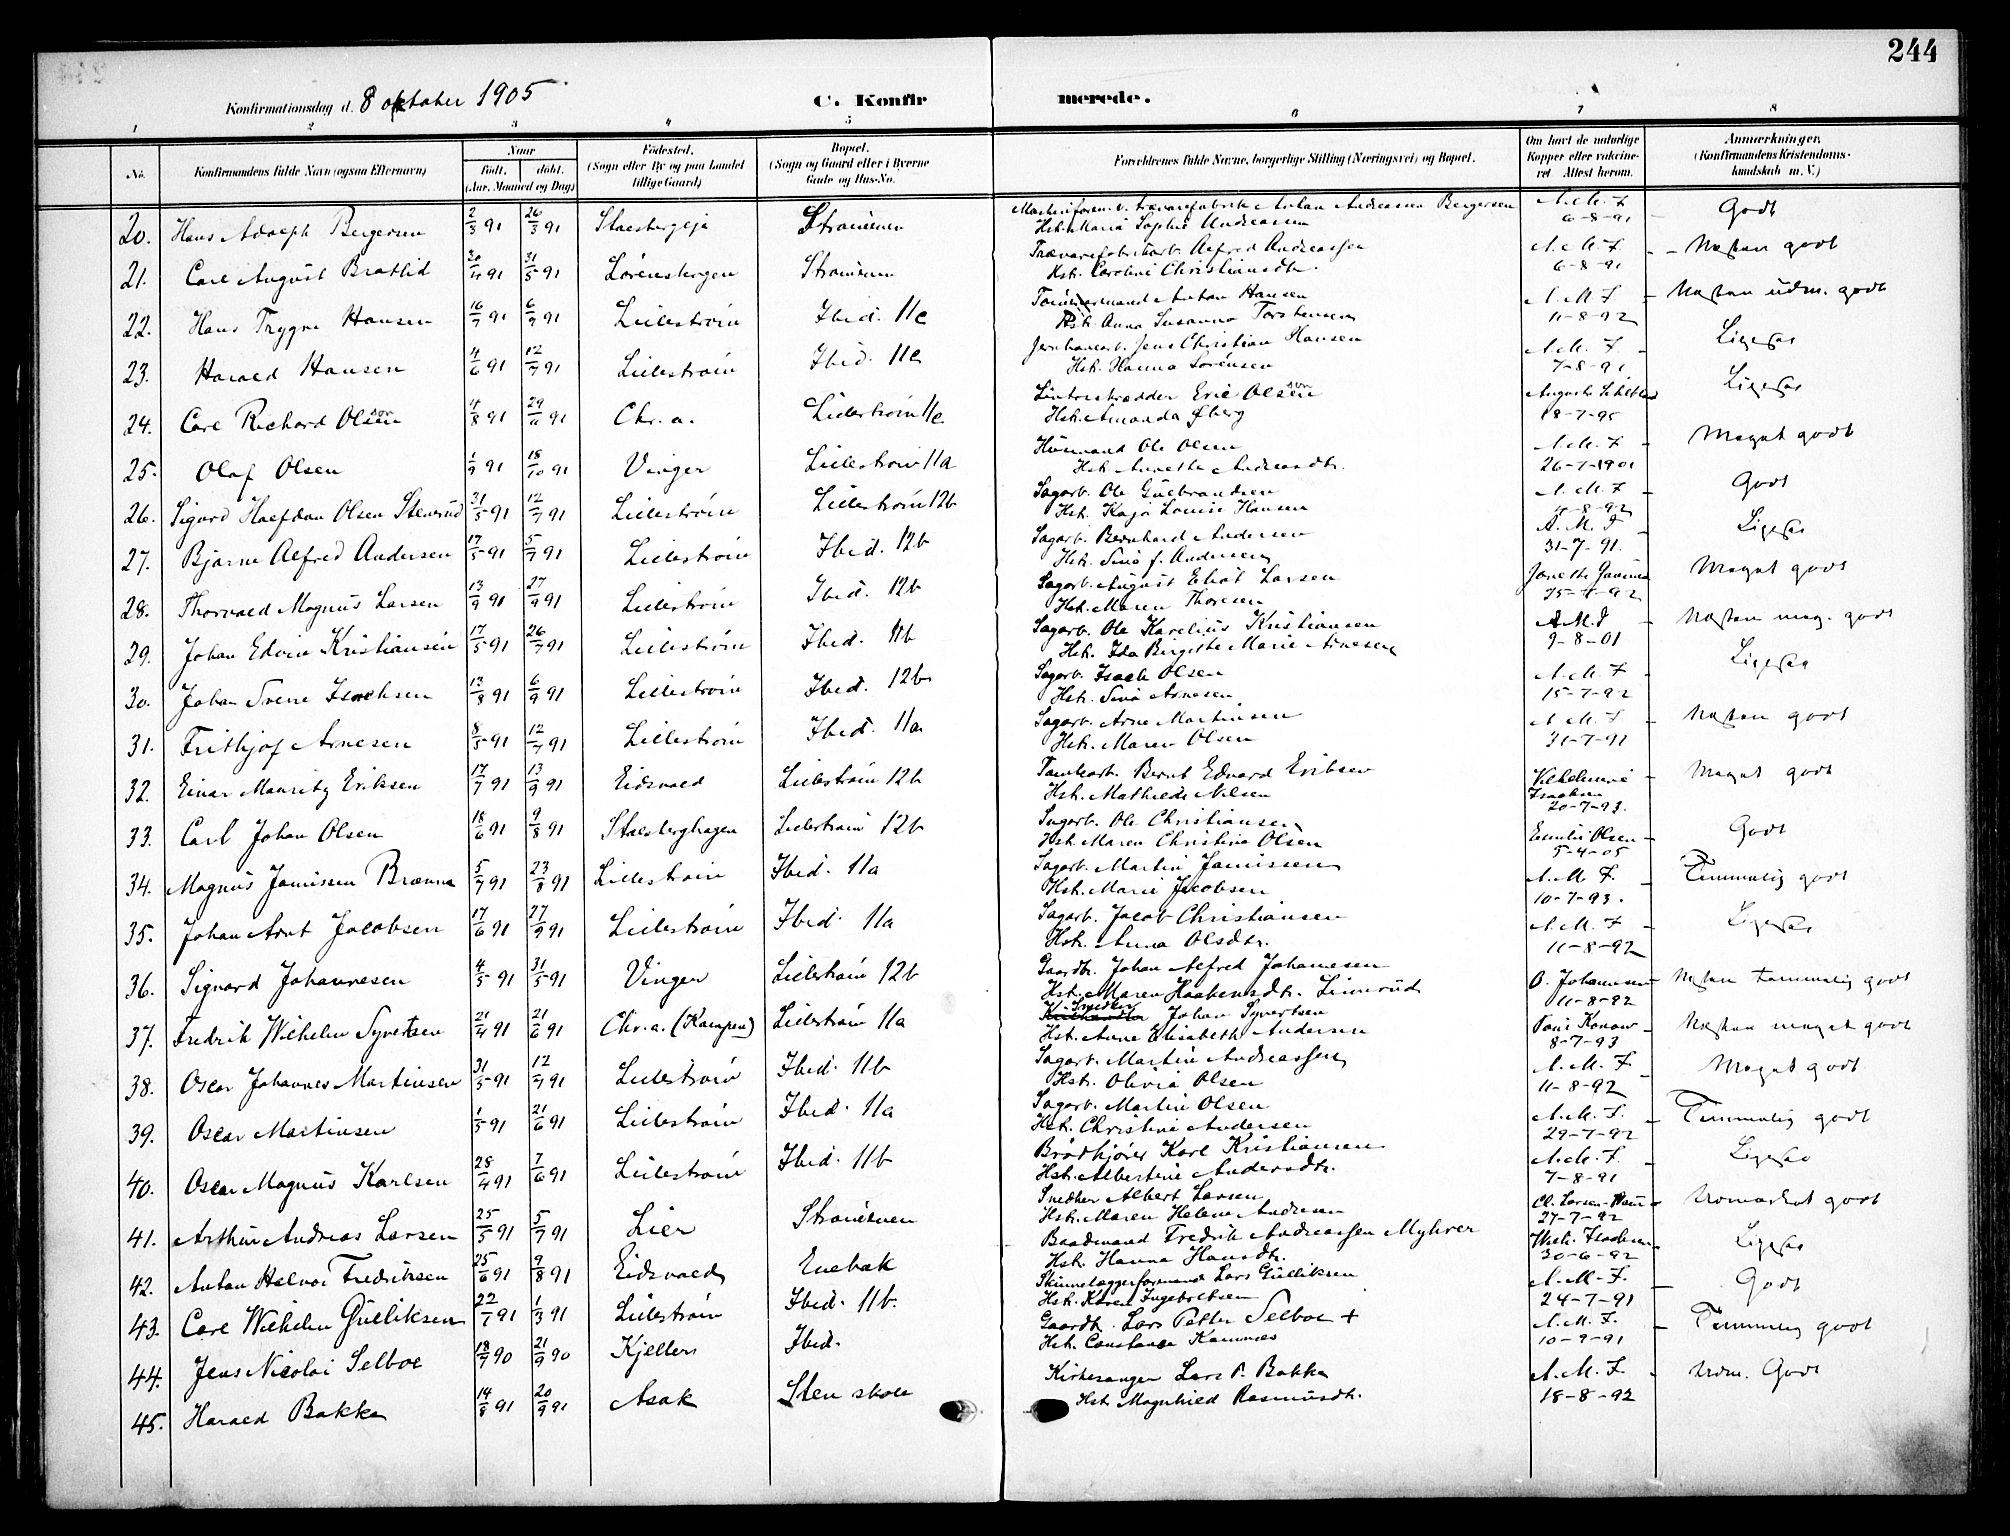 244
Konfirmationsdag d. 8 oktober 1905 C. Konfirmerede.
1 2 3 4 5 6 7 8
No. Konfirmandens fulde Navn (ogsaa Efternavn) Naar født, døbt. (Aar, Maaned og Dag) Fødested. (Sogn eller By og paa Landet tillige Gaard) Bopæl. (Sogn og Gaard eller i Byerne Gade og Hus-No. Forældrenes fulde Navne, borgerlige Stilling (Næringsvei) og Bopæl. Om havt de naturlige Kopper eller vaccineret Attest herom. Anmærkninger. (Konfirmandens Kristendomskundskab m. V.)
20. Hans Adolph Bergersen 2/3 91 26/3 91 Strømmen Anton Andreassen Bergersen Hst. Maria Sophie Andreassen A. M. F. 6-8-91 Godt
21. Carl August Bratlid 20/4 91 31/5 91 Lørensbergen Strømmen Trævarefabrikarb. Alfred Andreassen Hst. Caroline Christiansdtr. A. M. F. 6-8-91 Næsten godt
22. Hans Trygve Hansen 16/7 91 6/9 91 Lillestrøm Ibid. 11c Tømmermand Anton Hansen Hst. Anna Susanna Torstensen A. M. F. 11-8-92 Næsten udm. godt
23. Harald Hansen 4/6 91 12/7 91 Lillestrøm Ibid. 11c Jernbanearb. Jens Christian Hansen Hst. Hanna Sørensen A. M. F. 7-8-91 Ligesaa
24. Carl Richard Olsson 4/8 91 Chr.a. Lillestrøm 11c Eric Olsson Hst. Amanda Øberg 18-7-95 Ligesaa
25. Olaf Olsen 1/9 91 18/10 91 Vinger Lillestrøm 11a Husmand Ole Olsen Hst. Annette Andreasdtr. A. M. F. 26-7-1901 Meget godt
26. Sigurd Halfdan Olsen Stensrud 31/5 91 12/7 91 Lillestrøm Lillestrøm 12b Sagarb. Ole Gulbrandsen Hst. Kaja Louise Hansen A. M. F. 11-8-92 Godt
27. Bjarne Alfred Andersen 17/5 91 5/7 91 Lillestrøm Ibid. 12b Sagarb. Bernhard Andersen Hst. Sina f. Andersen A. M. F. 31-7-91. Ligesaa
28. Thorvald Magnus Larsen 13/9 91 27/9 91 Lillestrøm Ibid. 12b Sagarb. August Larsen Hst. Maren Thoresen Meget godt
29. Johan Edvin Kristiansen 17/5 91 26/7 91 Lillestrøm Ibid. 11b Sagarb. Ole Karelius Kristiansen Hst. Ida Birgitte Marie Arnesen A. M. F. 9-8-01 Næsten meg. godt
30. Johan Sverre Isachsen 13/8 91 6/9 91 Lillestrøm Ibid. 12b Sagarb. Isach Olsen Hst. Sina Arnesen A. M. F. 15-7-92 Ligesaa
31. Frithjof Arnesen 8/5 91 12/7 91 Lillestrøm Ibid. 11a Sagarb. Arne Martinsen Hst. Maren Olsen A. M. F. 31-7-91 Næsten godt
32. Einar Mauritz Eriksen 17/7 91 13/9 91 Eidsvold Lillestrøm 12b Tomtearb. Bernt Edvard Eriksen Hst. Mathilde Nilsen Vilhelmine Isachsen 20-7-93. Meget godt
33. Carl Johan Olsen 18/6 91 9/8 91 Stalsberghagen Lillestrøm 12b Sagarb. Ole Christiansen Hst. Maren Christine Olsen Emilie Olsen 5-4-05 Godt
34. Magnus Jonissen Brænna 5/7 91 23/8 91 Lillestrøm Ibid. 11a Sagarb. Martin Jonissen Hst. Marie Jacobsen A. M. F. 10-7-93. Temmelig godt
35. Johan Arnt Jacobsen 17/6 91 27/9 91 Lillestrøm Ibid. 11a Sagarb. Jacob Christiansen Hst. Anna Olsdtr. A. M. F. 11-8-92 Ligesaa
36. Signard Johannesen 4/5 91 31/5 91 Vinger Lillestrøm 12b Gaardbr. Johan Alfred Johannesen Hst. Maren Haakensdtr. Linnerud O. Johannesen 11-8-92 Næsten temmelig godt
37. Fredrik Wilhelm Syvertsen 21/4 91 21/6 91 Chr.a. (Kampen) Lillestrøm 11a Snedker Johan Syvertsen Hst. Anne Elisabeth Andersen 8-7-93 Næsten meget godt
38. Oscar Johannes Martinsen 31/5 91 12/7 91 Lillestrøm Ibid. 11b Sagarb. Martin Andreassen Hst. Olivia Olsen A. M. F. 11-8-92 Meget godt
39. Oscar Martinsen 1/5 91 21/6 91 Lillestrøm Ibid. 11a Sagarb. Martin Olsen Hst. Christine Andersen A. M. F. 29-7-92 Temmelig godt
40. Oscar Magnus Karlsen 28/4 91 7/6 91 Lillestrøm Ibid. 11b Brødkjører Karl Kristiansen Hst. Albertine Andersdtr. A. M. F. 7-8-91 Ligesaa
41. Arthur Andreas Larsen 25/5 91 5/7 91 Lier Strømmen Snedker Albert Larsen Hst. Maren Helene Andersen 27-7-92 Udmærket godt
42. Anton Halvor Fredriksen 25/6 91 9/8 91 Eidsvold Enebak Baadmand Fredrik Andreassen Myhrer Hst. Hanna Hansdtr. 30-6-92 Ligesaa
43. Carl Wilhelm Gulliksen 22/1 91 1/3 91 Lillestrøm Ibid. 11b. Skinnelæggerformand Lars Gulliksen Hst. Karen Ingebretsen A. M. F. 24-7-91 Godt
44. Jens Nicolai Selboe 18/7 90 21/9 90 Kjeller Ibid. Gaardbr. Lars Petter Selboe + Hst. Constance A. M. F. 10-9-91 Temmelig godt
45. Harald Bakke 14/8 91 20/9 91 Asak Sten skole Kirkesanger Lars P. Bakke Hst. Magnhild Rasmusdtr. A. M. F. 18-8-92 Udm. Godt